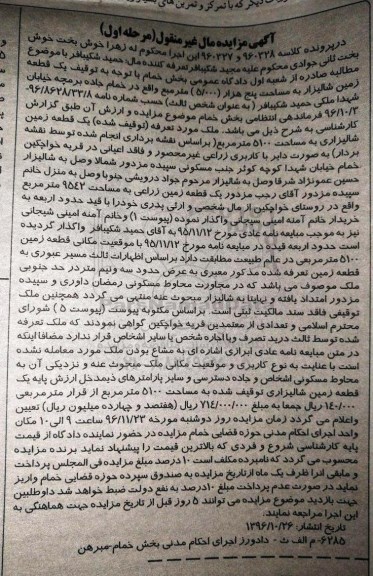 آگهی مزایده مال غیرمنقول (مرحله اول)
در پرونده کلاسه ۹۶۰۳۲۸ و ۹۶۰۲۲۷ این اجرا محکوم له زهرا خوش بخت خوش
بخت ثانی جوادی محکوم علیه مجید شکیبافر تعرفه کننده مال: حمید شکیبافر با موضوع
مطالبه صادره از شعبه اول دادگاه عمومی بخش خمام با توجه به توقیف یک قطعه
زمین شالیزار به مساحت پنج هزار (۵/۰۰۰) مترمربع واقع در خمام جاده برمچه خیابان
شهدا ملکی حمید شکیبافر (به عنوان شخص ثالث) حسب شماره نامه ۹۶/۸۶۲۸/۳۳/۸-
۹۶/۱۰/۳ فرماندهی انتظامی بخش خمام موضوع مزایده و ارزش آن طبق گزارش
کارشناسی به شرح ذیل می باشد. ملک مورد تعرفه (توقیف شده) یک قطعه زمین
شالیزاری به مساحت ۵۱۰۰ مترمربع (براساس نقشه برداری انجام شده توسط نقشه
بردار) به صورت دایر با کاربری زراعی غیرمحصور و فاقد اعیانی در قریه خواچکین
خمام خیابان شهدا کوچه کوثر جنب مسکونی سپیده مزدور شمالا وصل به شالیزار
حسین عمونژاد شرقا وصل به شالیزار مرحوم جواد درویشی جنوبا وصل به منزل خانم
سپیده مزدور آقای رجب مزدور یک قطعه زمین زراعی به مساحت ۹۵۴۲ مترمربع
واقع در روستای خواچکین از مال شخصی و ارثی پدری خود را با قید حدود اربعه به
خریدار خانم آمنه امینی شیجانی واگذار نموده (پیوست ۱) و خانم آمنه امینی شیجانی
نیز به موجب مبایعه نامه عادی مورخ ۹۵/۱۱/۱۲ به آقای حمید شکیبافر واگذار گردیده
است حدود اربعه قید در مبایعه نامه مورخ ۹۵/۱۱/۱۲ با موقعیت مکانی قطعه زمین
۵۱۰۰ مترمربعی در عالم طبیعت مطابقت دارد براساس اظهارات ثالث مسیر عبوری به
قطعه زمین تعرفه شده مذکور معبری به عرض حدود سه ونیم متر در حد جنوبی
ملک موصوف می باشد که در مجاورت محاوط مسکونی رمضان داوری و سپیده
مزدور امتداد یافته و نهایتا به شالیزار مبحوث عنه منتهی می گردد همچنین ملک
توقیفی فاقد سند مالکیت ثبتی است. براساس مکتوبه پیوست (پیوست ۵) شورای
محترم اسلامی و تعدادی از معتمدین قریه خواچکین گواهی نمودند که ملک تعرفه
شده توسط ثالث درید تصرف و یا اجاره شخص یا سایر اشخاص قرار ندارد مضافا اینکه
در متن مبایعه نامه عادی ابرازی اشاره ای به مشاع بودن ملک مورد معامله نشده
است با عنایت به نوع کاربری و موقعیت مکانی ملک مبحوث عنه و نزدیکی آن به
محاوط مسکونی اشخاص و جاده دسترسی و سایر پارامترهای ذیمدخل ارزش پایه یک
قطعه زمین شالیزاری توقیف شده به مساحت ۵۱۰۰ مترمربع از قرار مترمربعی
۱۴۰/۰۰۰ ریال جمعا به مبلغ ۷۱۴/۰۰۰/۰۰۰ ریال (هفتصد و چهارده میلیون ریال) تعیین
واعلام می گردد زمان مزایده روز دوشنبه مورخه ۹۶/۱۱/۲۳ ساعت ۹ الی ۱۰ مکان
واحد اجرای احکام مدنی حوزه قضایی خمام مزایده در حضور نماینده دادگاه از قیمت
پایه کارشناسی شروع و فردی که بالاترین قیمت را پیشنهاد نماید برنده مزایده
محسوب می گردد که نامبرده مکلف است ۱۰ درصد مبلغ مزایده فی المجلس پرداخت
و مابقی را ظرف یک ماه از تاریخ مزایده به صندوق سپرده حوزه قضایی خمام واریز
نماید در صورت عدم پرداخت مبلغ ۱۰ درصد به نفع دولت ضبط خواهد شد داوطلبین
جهت بازدید موضوع مزایده می توانند ۵ روز قبل از تاریخ مزایده جهت هماهنگی به
این اجرا مراجعه نمایند.
تاریخ انتشار: ۱۳۹۶/۱۰/۲۶
۶۲۸۵- م الف ث - دادورز اجرای احکام مدنی بخش خمام- میرهن